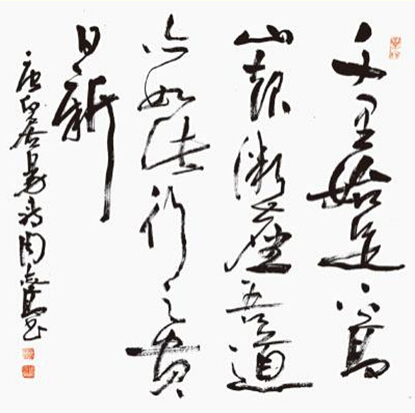 千里始足下高
山起微塵吾道
亦如此行之貴
日新
唐白居易詩